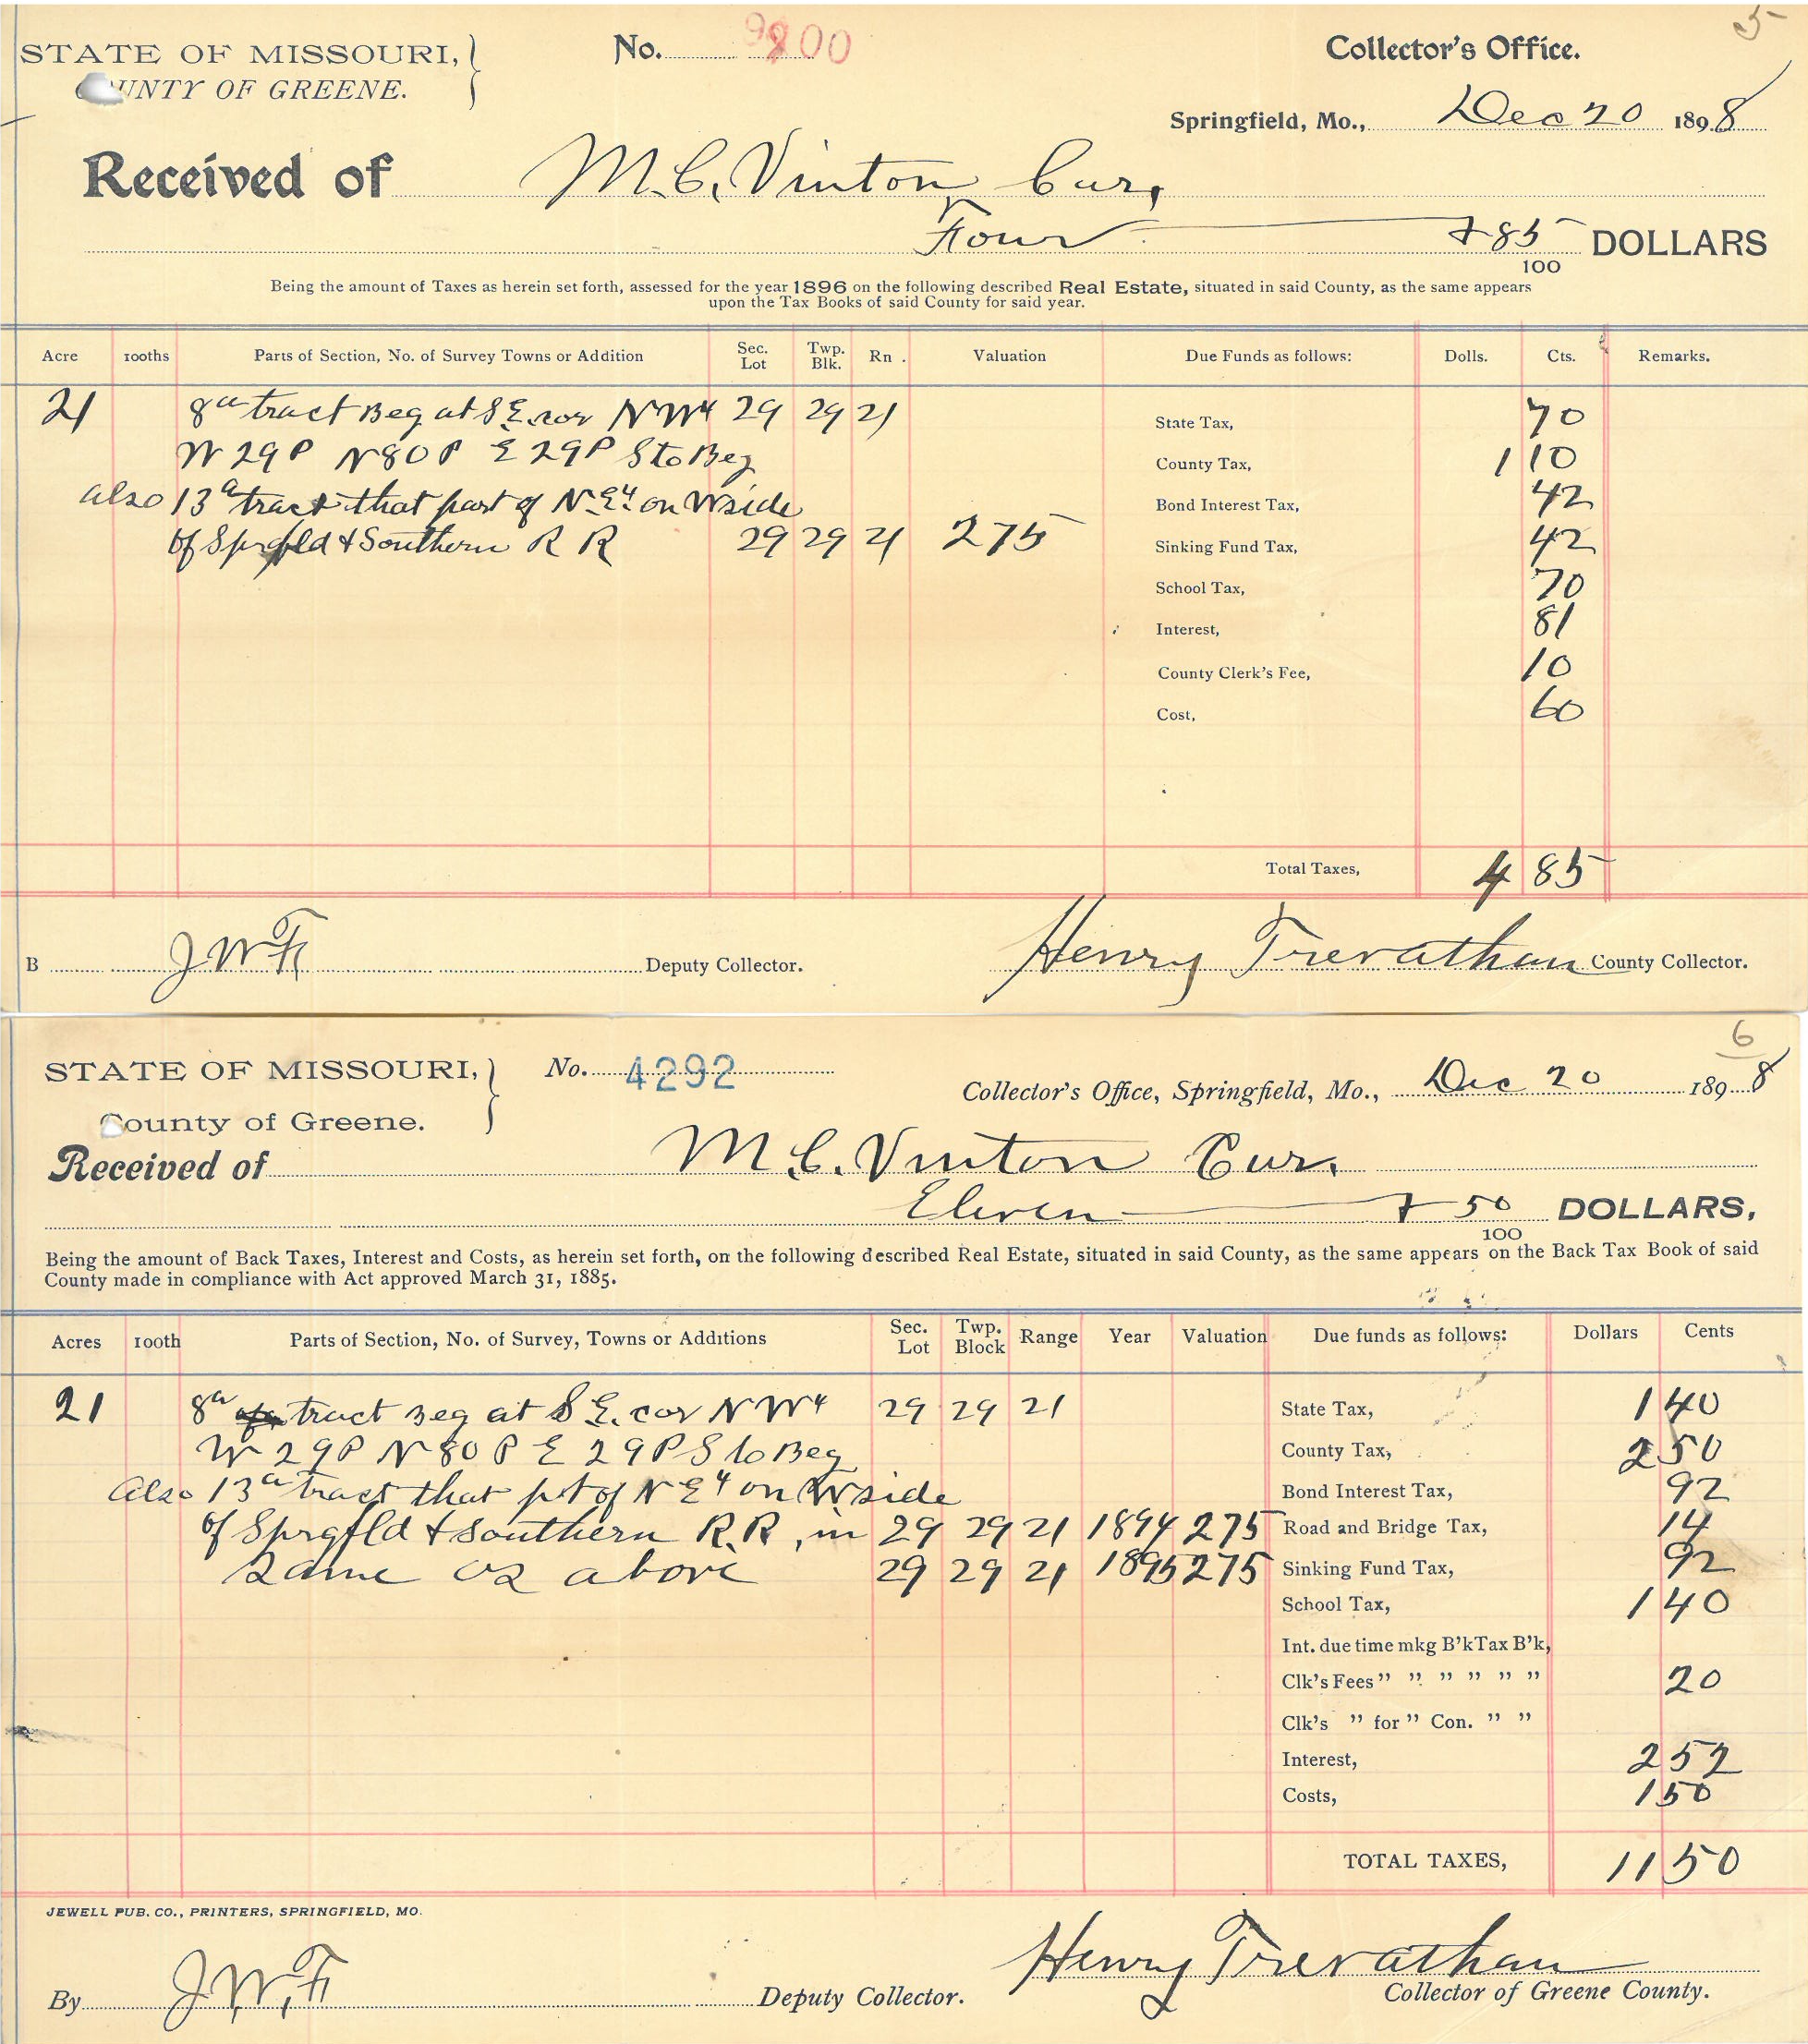 5
STATE OF MISSOURI, No. 9800 Collector's Office.
UNTY OF GREENE.
Springfield, Mo., Dec 20 1898
Received of M. C. Vinton Cur,
Four + 85/100 DOLLARS
Being the amount of Taxes as herein set forth, assessed for the year 1896 on the following described Real Estate, situated in said County, as the same appears
upon the Tax Books of said County for said year.
Acre 100ths Parts of Section, No. of Survey Towns or Addition Sec. Lot Twp. Blk. Rn . Valuation Due Funds as follows: Dolls. Cts. Remarks.
21 8a tract Beg at S E. cor N W4 29 29 21 State Tax, 70
W 29 P N 80 P E 29 P S to Beg County Tax, 1 10
also 13a tract that part of N E4 on W side Bond Interest Tax, 42
of Sprgfld + Southern R R 29 29 21 275 Sinking Fund Tax, 42
School Tax, 70
Interest, 81
County Clerk's Fee, 10
Cost, 60
Total Taxes, 4 85
B J W F Deputy Collector. Henry Trevathan County Collector.
6
STATE OF MISSOURI, No. 4292 Collector's Office, Springfield, Mo., Dec 20 1898
County of Greene.
Received of M. C. Vinton Cur.
Eleven + 50/100 DOLLARS,
Being the amount of Back Taxes, Interest and Costs, as herein set forth, on the following described Real Estate, situated in said County, as the same appears on the Back Tax Book of said
County made in compliance with Act approved March 31, 1885.
Acres 100th Parts of Section, No. of Survey, Towns or Additions Sec. Lot Twp. Block Range Year Valuation Due funds as follows: Dollars Cents
21 8a tract Beg at S E. cor N W4 29 29 21 State Tax, 1 40
W 29 P N 80 P E 29 P S to Beg County Tax, 2 50
Also 13a tract that pt of N E4 on W side Bond Interest Tax, 92
of Sprgfld + Southern R.R, in 29 29 21 1894 275 Road and Bridge Tax, 14
Same as above 29 29 21 1895 275 Sinking Fund Tax, 92
School Tax, 1 40
Int. due time mkg B'k Tax B'k,
Clk's Fees " " " " " " 20
Clk's " for " Con. " "
Interest, 2 52
Costs, 1 50
TOTAL TAXES, 11 50
JEWELL PUB. CO., PRINTERS, SPRINGFIELD, MO.
By J. W. F Deputy Collector. Henry Trevathan
Collector of Greene County.